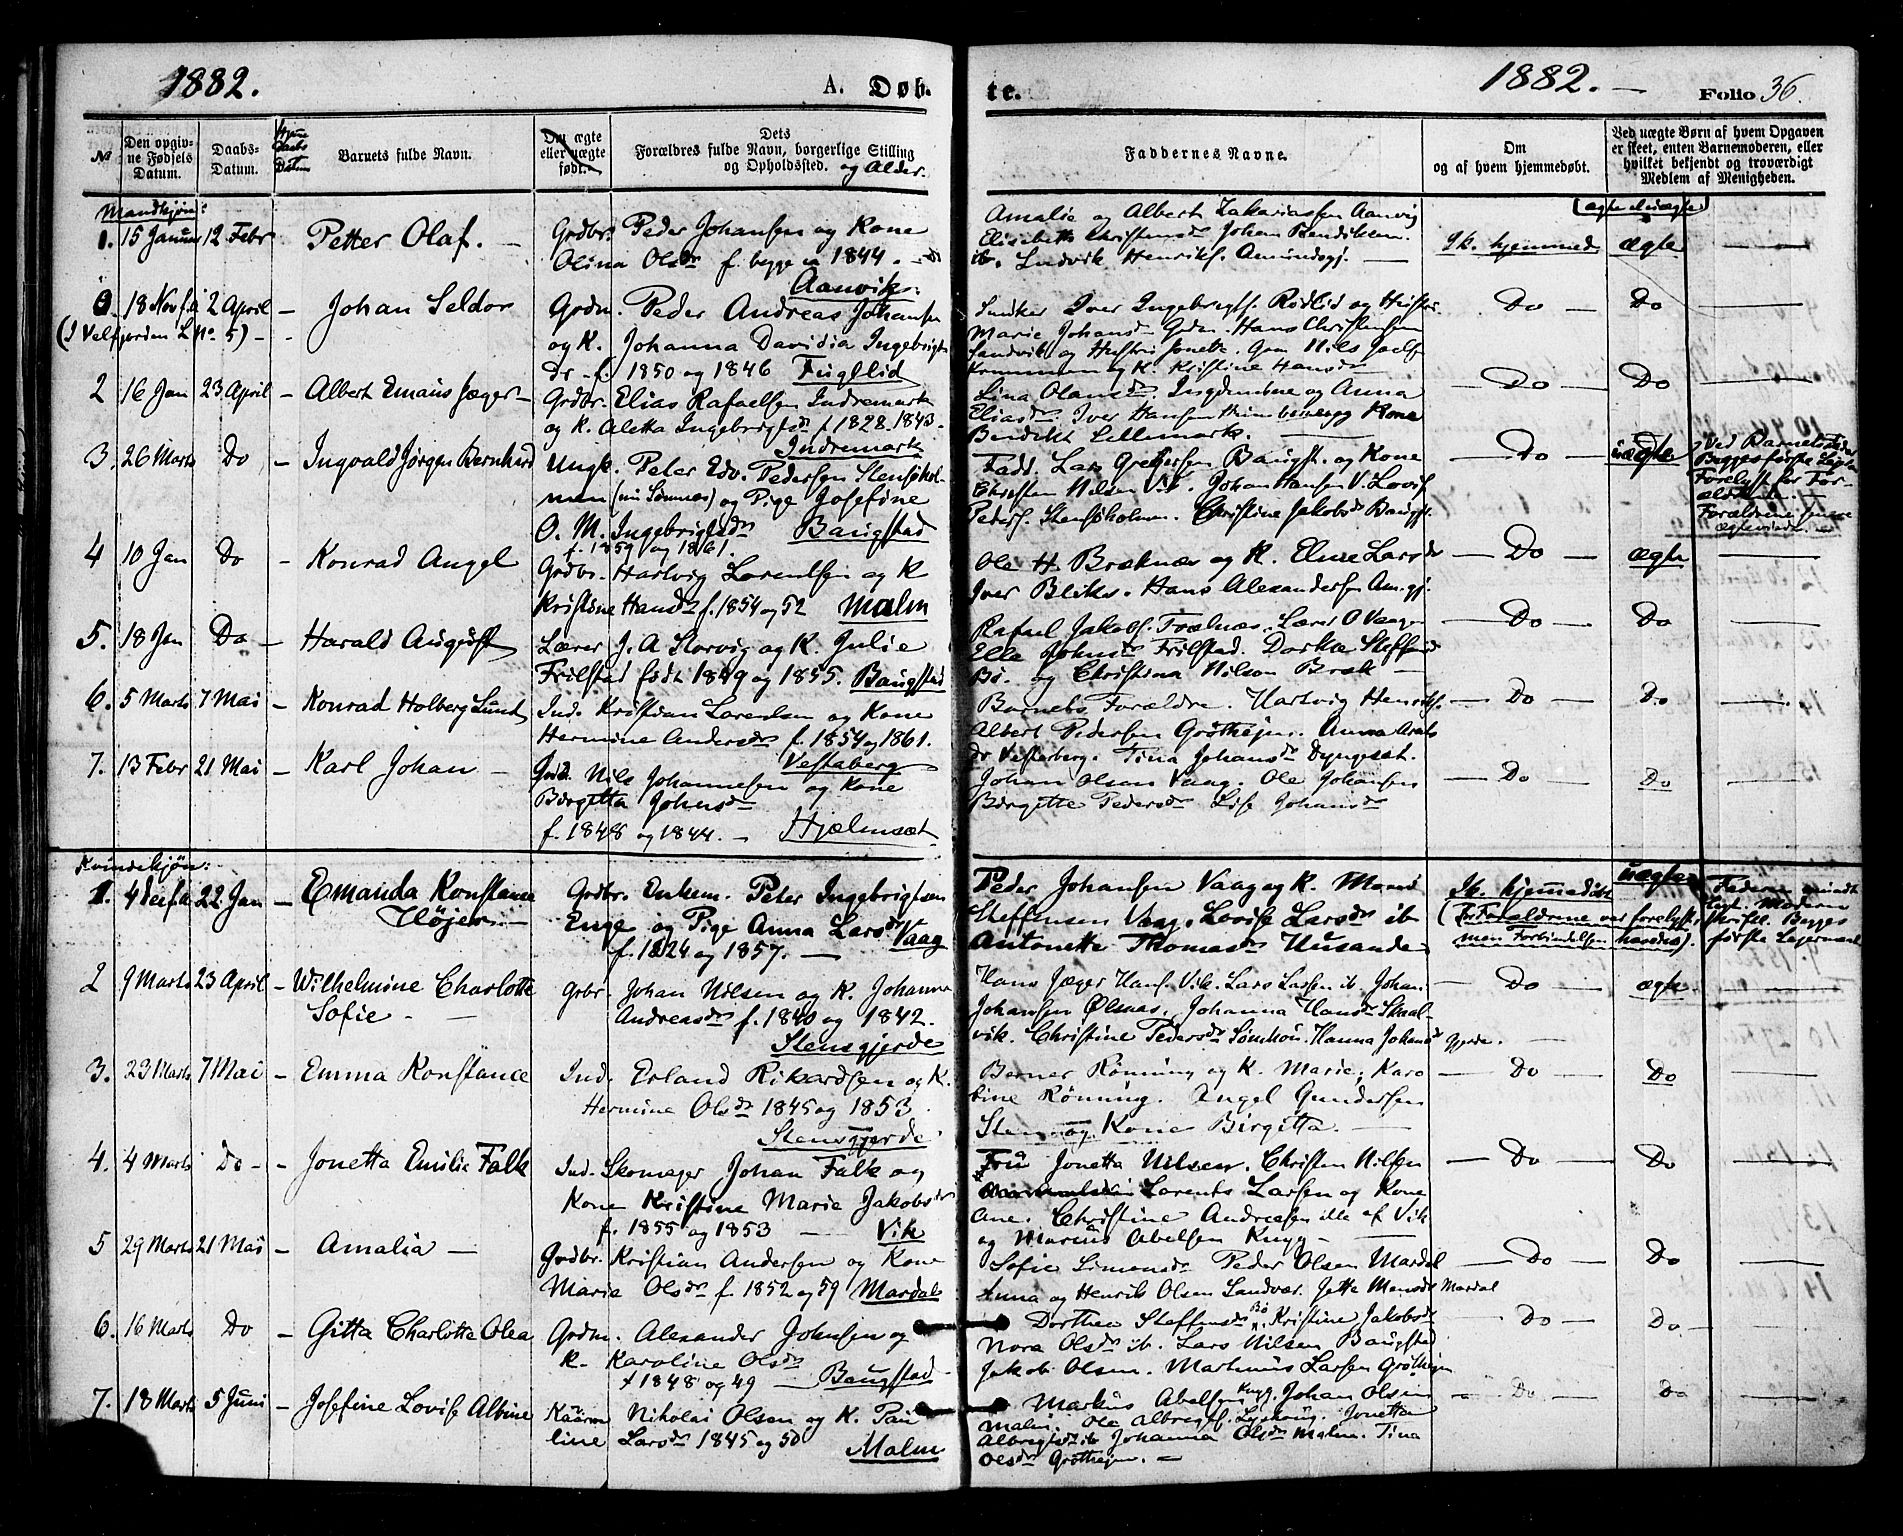 1882. A. Døb-
te. 1882. — Folio 36.
№ Den opgiv-
ne Fødsels
Datum.
Daabs-
Datum.
Hjme
daabs
Datum
Barnets fulde Navn.
Om ægte
eller uægte
født.
Dets
Forældres fulde Navn, borgerlige Stilling
og Opholdssted. og Alder.
Faddernes Navne.
Om
og af hvem hjemmedøbt.
Ved uægte Børn af hvem Opgaven
er skeet, enten Barnemoderen, eller
hvilket bekjendt og troværdigt
Medlem af Menigheden.
Mandkjøn:
1. 15 Januar 12 Febr Petter Olaf. — Grdbr. Peder Johansen og Kone
Olina Olsdr f. begge i 1844. —
Aanvik.
Amalie og Albert Zakariassen Aanvig
Elisabeth Christensdr Johan Bendiksen
ib. Ludvik Henriks. Amundsgj. —
Ik. hjemmed ægte
0. 18 Nov f.a. 2 April — Johan Seldor Grdm. Peder Andreas Johansen
(I Velfjorden L No. 5) — og K. Johanna Davidia Ingebrigts
Dr — f. 1850 og 1846 Fuglelid
Iver Ingebrigts. Rødlid og Hustru
Marie Johansdr Grdm. Hans Christensen
Sandvik og Hustru Nils
og K. Kristine Hansdr
— Do — Do
2 16 Jan 23 April — Albert Emaus Jæger — Grdbr. Elias Rafaelsen Indremark
og K. Aletta Ingebrigtsdr f. 1828. 1843.
Indremark
Lina Olausdr. og Anna
Eliasdr. Iver Hansen og Kone
Bendikt Lillemark. —
— Do — Do
3. 26 Marts Do — Ingvald Jørgen Bernhard Ungk. Peter Edv. Pedersen Stensøhol-
men (nu Sømnes) og Pige Josefine
O. M. Ingebrigtsdr Baugstad
f. 1859 og 1861.
Fadd. Lars Gregersen Baugst. og Kone
Christen Nilsen Vik. Johan Hansen V. Lovise
Peders. Stensøholmen. Christine Jakobsdr Baugst.
— Do — uægte
Ved Barnets Fader
Begges første Leierm.
Forelyst for For-
ældrene.
Forældrene senere
ægteviede. —
4 10 Jan Do — Konrad Angel Grdbr. Hartvig Lorentsen og K
Kristine Hansdr f. 1854 og 52 Malm
Ole H. Bræknæs og K. Elise Larsdr
Iver Bliks. Hans Alexandersen Am.gj.
— Do — ægte
5. 18 Jan Do — Harald August Lærer J. A Storvig og K. Julie
Frilstad født 1849 og 1855. Baugstad
Rafael Jakobs. Trælnæs. Lærer O Vaage
Ella Johnsdr Frilstad. Dorthea Steffensd
Bø. og Christina Nilson Bræk —
— Do — Do
6. 5 Marts 7 Mai — Konrad Holberg Lund Ind. Kristian Lorentsen og Kone
Hermine Andersdr f. 1854 og 1861.
Vestaberg
Barnets Forældre. Hartvig Henriks.
Albert Pedersen Grøtheim. Anna Arnts
dr Vestaberg. Tina Johansdr Dyngeset.
— Do — Do
7. 13 Febr 21 Mai — Karl Johan — Grdb. Nils Johannesen og Kone
Birgitta Johnsdr
f. 1848 og 1844. — Hjelmsæt
Johan Olson Vaag. Ole Johansen
Birgitte Pedersdr Lise Johansdr
— Do — Do
Kvindekjøn:
1. 4 Dec f.a. 22 Jan — Emanda Konstance
Højer. —
Grdbr. Enkem. Peter Ingebrigtsen
Enge og Pige Anna Larsdr
f. 1824 og 1857. — Vaag
Peder Johansen Vaag og K. Mons
Steffensen Vaag. Lovise Larsdr ib
Antonette Thomasdr Husande
Ik. hjemmedøbt uægte
(For Forældrene var forelyst,
men Forbindelsen hævedes).
Faderen mundt
ligt. Moderen
skriftl. Begges
første Leiermaal
2 9 Marts 23 April — Wilhelmine Charlotte
Sofie — —
Grbr. Johan Nilsen og K. Johanne
Andreasdr f. 1840 og 1842.
Stensgjerde
Hans Jæger Hans. Vik. Lars Larsen ib. Johan
Johansen Ølsnas. Johanna Hansdr Skaal-
vik. Christine Pedersdr Sømhov. Hanna Johansd gjerde. —
— Do — ægte
3. 23 Marts 7 Mai — Emma Konstance Ind. Erland Rikardsen og K.
Hermine Olsdr 1845 og 1853
Stensgjerde
Berner Rönning og K. Marie; Karo
line Rönning. Angel Gundersen
Stens og Kone Birgitta —
— Do — Do
4. 4 Marts Do — Jonetta Emilie Falk Ind. Skomager Johan Falk og
Kone Kristine Marie Jakobsdr
f. 1855 og 1853 — Vik
Fru Jonetta Nilsen. Christen Nilsen
Lorents Larsen og Kone
Ane. Christine Andreasen ille af Vik
og Marius Abelsen Knyg —
— Do — Do
5 29 Marts 21 Mai — Amalia — Grdbr. Kristian Andersen og Kone
Maria Olsdr f. 1852 og 59 Mardal
Sofie Simonsdr Peder Olsen Mardal
Anna og Henrik Olsen Sandvær. Jette Monsdr Mardal
— Do — Do
6. 16 Marts Do — Gitta Charlotte Olea Grdm. Alexander Johnsen og
K. Karoline Olsdr
f 1848 og 49 — Baugstad
Dorthea Steffensdr Bø. Kristine Jakobsdr
Nora Olsdr ib. Lars Nilsen Baugstad
Jakob Olsen. Martinus Larsen Grøtheim
— Do — Do
7. 18 Marts 5 Juni — Josefine Lovise Albine Nikolai Olsen og K. Pau
line Larsdr 1845 og 50 Malm
Markus Abelsen Knyg. Johan Olsen
Malm. Ole Albregts. Jonetta
Albregtsdr ib Johanna Olsdr Malm. Tina
Olsdr Grøtheim. —
— Do — Do